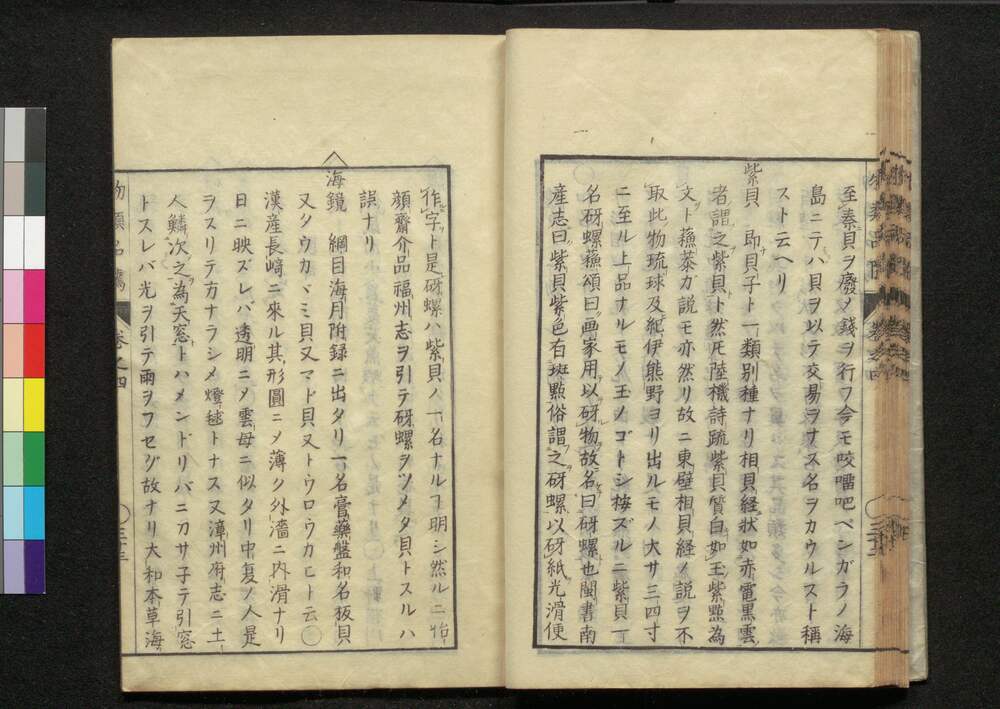 至秦貝ヲ廢ノ錢ヲ行フ今モ咬𠺕吧ベンガラノ海
島ニテハ貝ヲ以テ交易ヲナス名ヲカウルスト稱
スト云ヘリ
紫貝 即貝子ト一類別種ナリ相貝経状如赤電黒雲
者謂之紫貝ト然𪜈陸機詩疏紫貝質白如玉紫㸃為
文ト蘓恭カ説モ亦然リ故ニ東壁相貝経ノ説ヲ不
取此物琉球及紀伊熊野ヨリ出ルモノ大サ三四寸
ニ至ル上品ナルモノ玉ノゴトシ桉ズルニ紫貝一
名砑螺蘓頌曰画家用以砑物故名曰砑螺也閩書南
産志曰紫貝紫色有斑㸃俗謂之砑螺以砑紙光滑便
作字ト是砑螺ハ紫貝ノ一名ナルヿ明シ然ルニ怡
顔齋介品福州志ヲ引テ砑螺ヲツメタ貝トスルハ
誤ナリ
海鏡 綱目海月附録ニ出タリ一名膏藥盤和名板貝
又タウカヾミ貝又マド貝又トウロウカヒト云〇
漢産長﨑ニ來ル其形圓ニメ薄ク外濇ニ内滑ナリ
日ニ映ズレバ透明ニメ雲母ニ似タリ中夏ノ人是
ヲスリテ方ナラシメ燈毬トナス又漳州府志ニ土
人鱗次之為天窓トハメンドリバニカサ子テ引窓
トスレバ光ヲ引テ雨ヲフセグ故ナリ大和本草海
物類品隲 巻之四 三十三